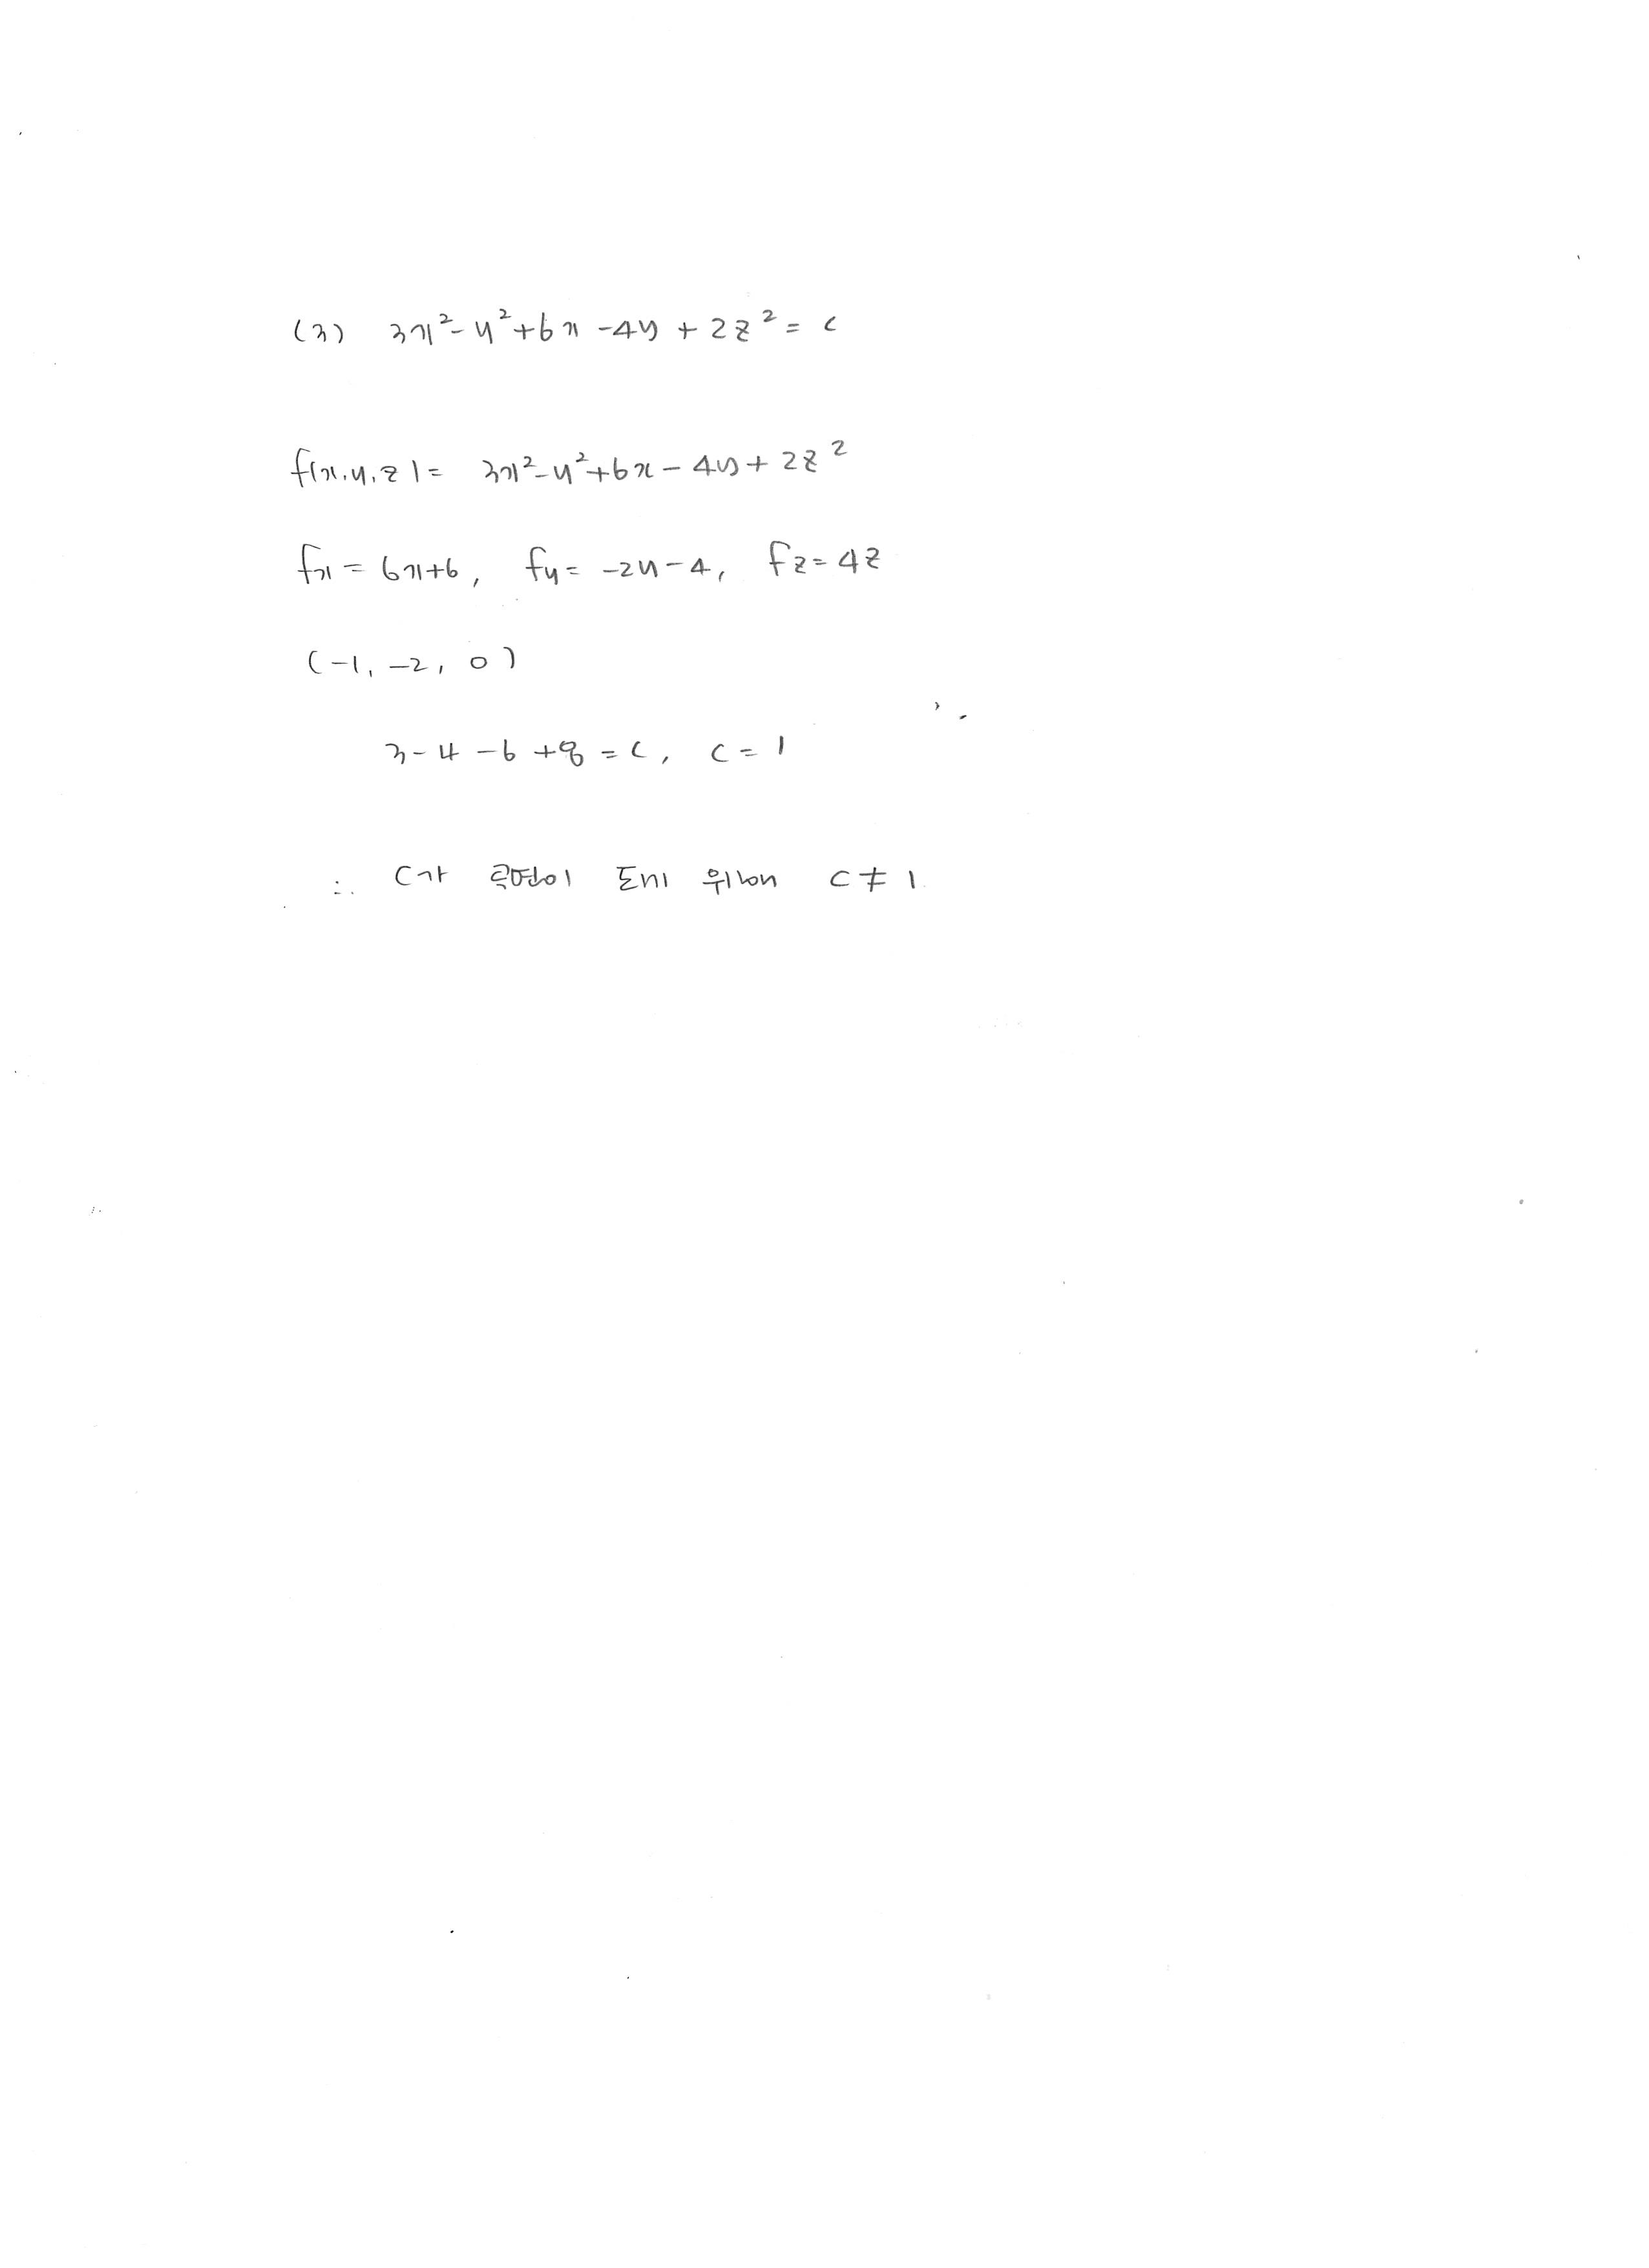 (3) 3x²-y²+6x-4y+2z²=c
f(x,y,z)= 3x²-y²+6x-4y+2z²
fx=6x+6, fy=-2y-4, fz=4z
(-1,-2,0)
3-4-6+8=c, c=1
∴ C가 곡면이 되기 위해선 C≠1